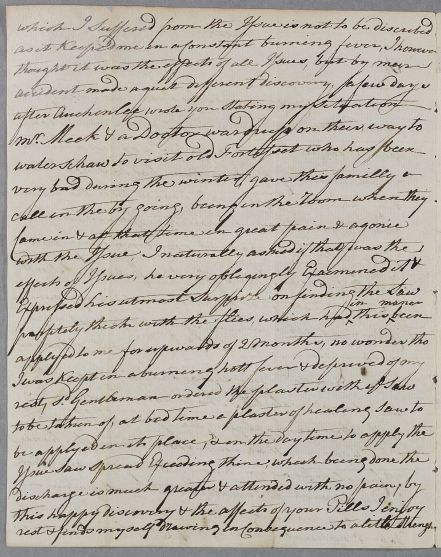 which I suffered from the Issue is not to be discribed
as it Keeped me in a Constant burning fever, I however
thought it was the effects of all Issues, but by mear
accident made a quit different discovery, a few days
after Auchenleck wrote you Stating my Situation
Mr. Meek & a Doctor Wardrop on their way to
Watershaw to visit old Forte who has been
very bad during the winter, gave this familly a
Call in the by going, being in the Room when they
Came in & at that time in great pain & agonie
with the Issue, I naturally asked if that was the
effects of Issues, he very oblegingly Examined it &
Expressed his utmost Surprise on finding the Saw
in maner
pasted thick with the flies, which had this been
applyed to me for upwards of 2 months, no wonder tho
I was Keept in a burning hott fever & deprived of my
rest, Sd. Gentleman ordered the plaster with sd. Saw
to be taken of, at bed time a plaster of healing Saw to
be applyed in its place, & on the day time to apply the
Issue Saw Spread Exceeding thine, which being done the
discharge is much greater & attended with no pain, by
this happy discovery & the affects of your Pills I enjoy
rest & finds myself Drawing in Consequence to a little Strength